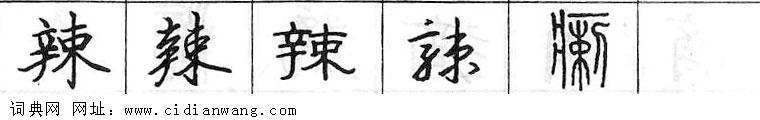 辣 辣 辣 辣
词典网 网址:www.cidianwang.com